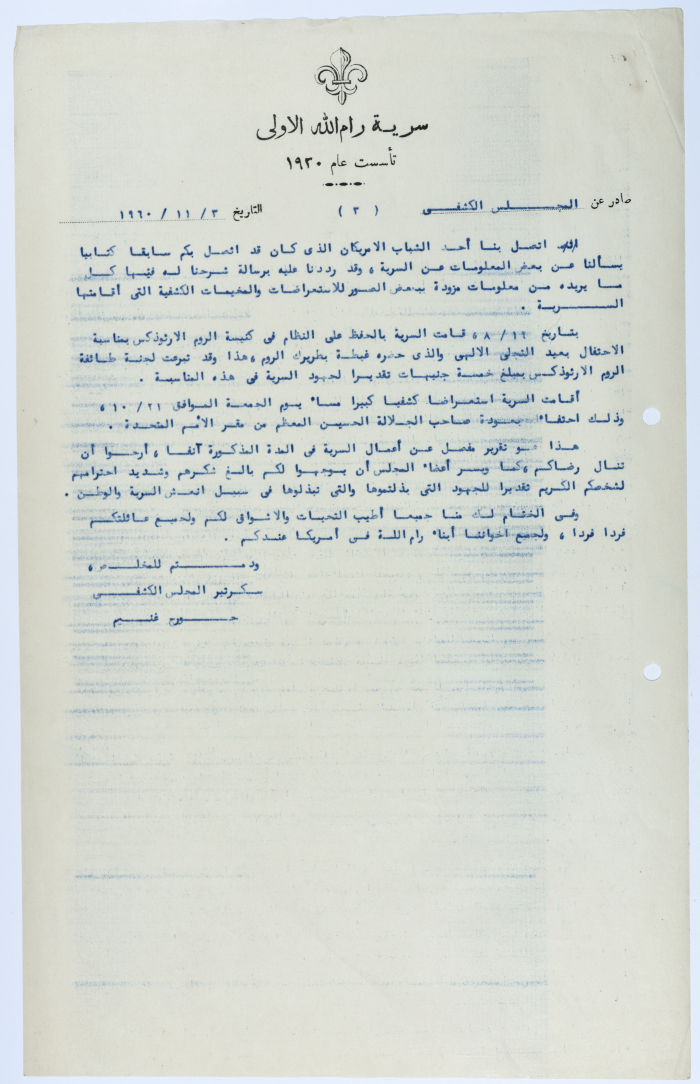 سرية رام الله الاولى
تأسست عام ١٩٢٠
صادر عن المجلس الكشفي ( ٣ ) التاريخ ٣ / ١١ / ١٩٦٠
اتصل بنا أحد الشباب الامريكان الذى كان قد اتصل بكم سابقا كتابيا
يسألنا عن بعض المعلومات عن السرية ، وقد رددنا عليه برسالة شرحنا له فيها كل
ما يريده من معلومات مزودة ببعض الصور للاستعراضات والمخيمات الكشفية التى أقامتها
السرية .
بتاريخ ١٩ / ٨ ، قامت السرية بالحفظ على النظام فى كنيسة الروم الارثوذكس بمناسبة
الاحتفال بعيد التجلى الالهى والذى حضره غبطة بطريرك الروم ، هذا وقد تبرعت لجنة طائفة
الروم الارثوذكس بمبلغ خمسة جنيهات تقديرا لجهود السرية فى هذه المناسبة .
أقامت السرية استعراضا كشفيا كبيرا مساء يوم الجمعة الموافق ٢١ / ١٠ ،
وذلك احتفاء بعودة صاحب الجلالة الحسين المعظم من مقر الأمم المتحدة .
هذا هو تقرير مفصل عن أعمال السرية فى المدة المذكورة آنفا ، أرجوا أن
تنال رضاكم ، كما ويسر أعضاء المجلس أن يوجهوا لكم بالغ شكرهم وشديد احترامهم
لشخصكم الكريم تقديرا للجهود التى بذلتموها والتى تبذلوها فى سبيل انعاش السرية والوطن .
وفى الختام لك منا جميعا أطيب التحيات والاشواق لكم ولجميع عائلتكم
فردا فردا ، ولجميع اخواننا أبناء رام الله فى أمريكا عندكم .
ودمتم للمخلص ،
سكرتير المجلس الكشفى
جورج غنيم